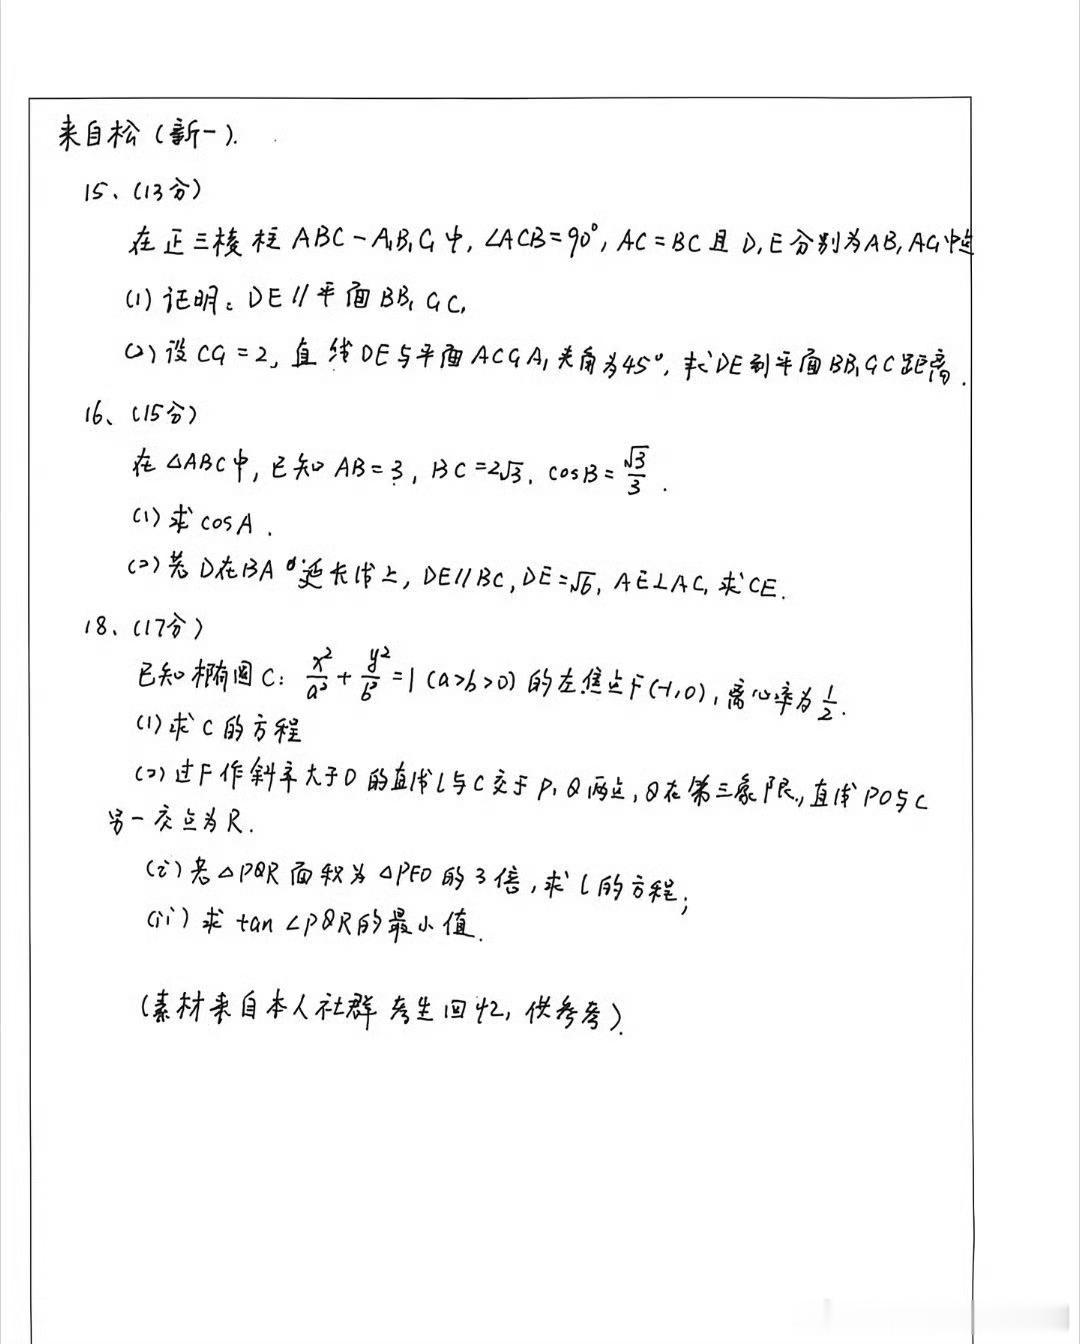 来自松(新一).
15、(13分)
在正三棱柱 ABC-A₁B₁C₁中, ∠ACB=90°, AC=BC且 D,E分别为AB, AC₁中点
(1) 证明: DE∥平面 BB₁C₁C,
(2) 设 CC₁=2, 直线DE与平面ACC₁A₁夹角为45°, 求DE到平面BB₁C₁C距离.
16、(15分)
在△ABC中, 已知 AB=3, BC=2√3, cosB=√3/3.
(1) 求cosA.
(2) 若 D在BA延长线上, DE∥BC, DE=√6, AE⊥AC, 求CE.
18、(17分)
已知椭圆C: x²/a²+y²/b²=1 (a>b>0) 的左焦点F(-1,0), 离心率为1/2.
(1) 求C的方程
(2) 过F作斜率大于0的直线l与C交于P,Q两点, Q在第三象限, 直线PO与C
另一交点为R.
(i) 若△PQR面积为△PFO的3倍, 求l的方程;
(ii) 求 tan∠PQR的最小值.
(素材来自本人社群考生回忆, 供参考).